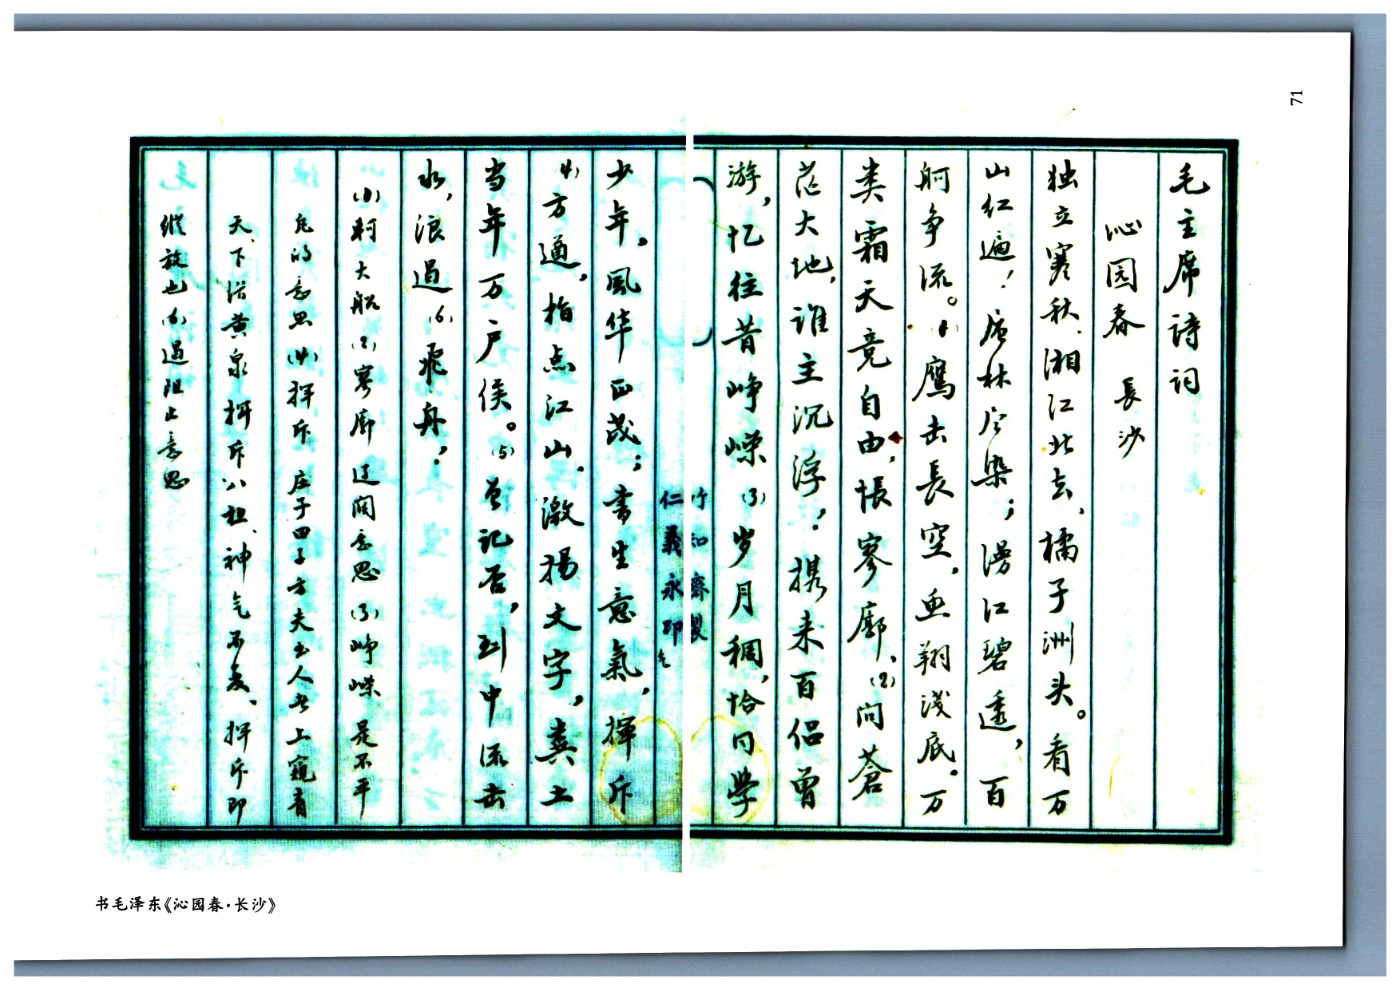 毛主席诗词
沁园春 長沙
独立寒秋、湘江北去、橘子洲头。看万
山红遍！层林尽染；漫江碧透，百
舸争流。(1)鹰击長空，鱼翔浅底。万
类霜天竞自由，怅寥廓、(2)问蒼
茫大地，谁主沉浮！携来百侣曾
游，忆往昔峥嵘(3)岁月稠，恰同學
竹和齋製
仁義永印
少年，風华正茂；書生意氣，揮斥
(4)方遒，指点江山。激揚文字，粪土
当年万户侯。(5)曾记否，到中流击
水，浪遏(6)飛舟！
(1)舸大船(2)寥廓 辽闊意思(3)峥嵘 是不平
凡的意思(4)揮斥 庄子田子方夫至人者上窺青
天、下潛黄泉揮斥八极、神气不变、揮斥即
縱放也(6)遏阻止意思
书毛泽东《沁园春·长沙》
71